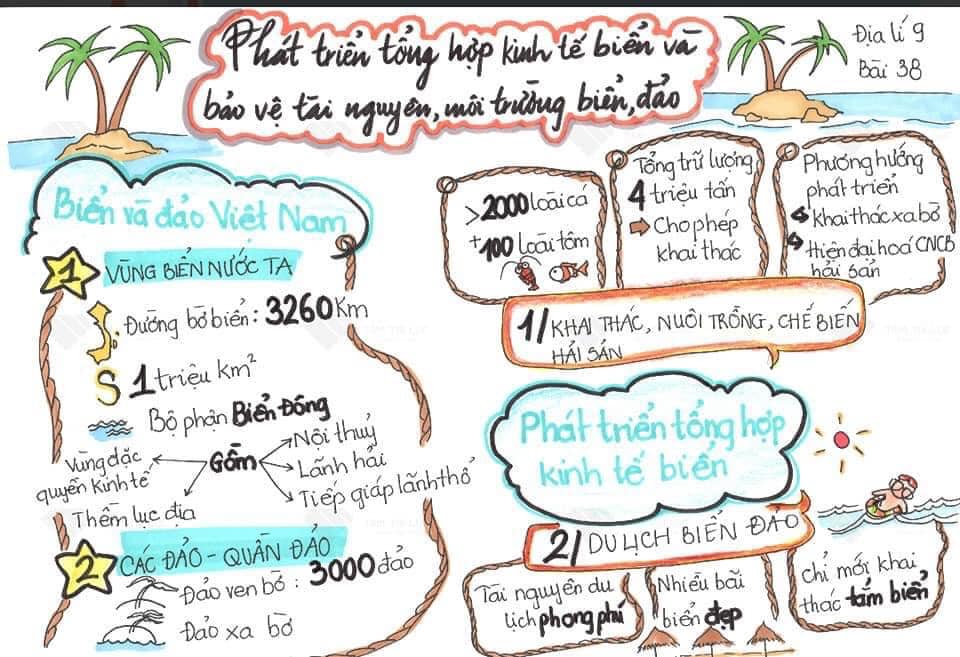 Phát triển tổng hợp kinh tế biển và
bảo vệ tài nguyên, môi trường biển, đảo
Địa lí 9
Bài 38
Biển và đảo Việt Nam
1 VÙNG BIỂN NƯỚC TA
Đường bờ biển: 3260 Km
S 1 triệu km²
Bộ phận Biển Đông
Gồm
Nội thuỷ
Lãnh hải
Tiếp giáp lãnh thổ
Vùng đặc
quyền kinh tế
Thềm lục địa
2 CÁC ĐẢO - QUẦN ĐẢO
Đảo ven bờ: 3000 đảo
Đảo xa bờ
>2000 loài cá
+100 loài tôm
Tổng trữ lượng
4 triệu tấn
Cho phép
khai thác
Phương hướng
phát triển
Khai thác xa bờ
Hiện đại hoá CNCB
hải sản
1/ KHAI THÁC, NUÔI TRỒNG, CHẾ BIẾN
HẢI SẢN
Phát triển tổng hợp
kinh tế biển
2/ DU LỊCH BIỂN ĐẢO
Tài nguyên du
lịch phong phú
Nhiều bãi
biển đẹp
chỉ mới khai
thác tắm biển